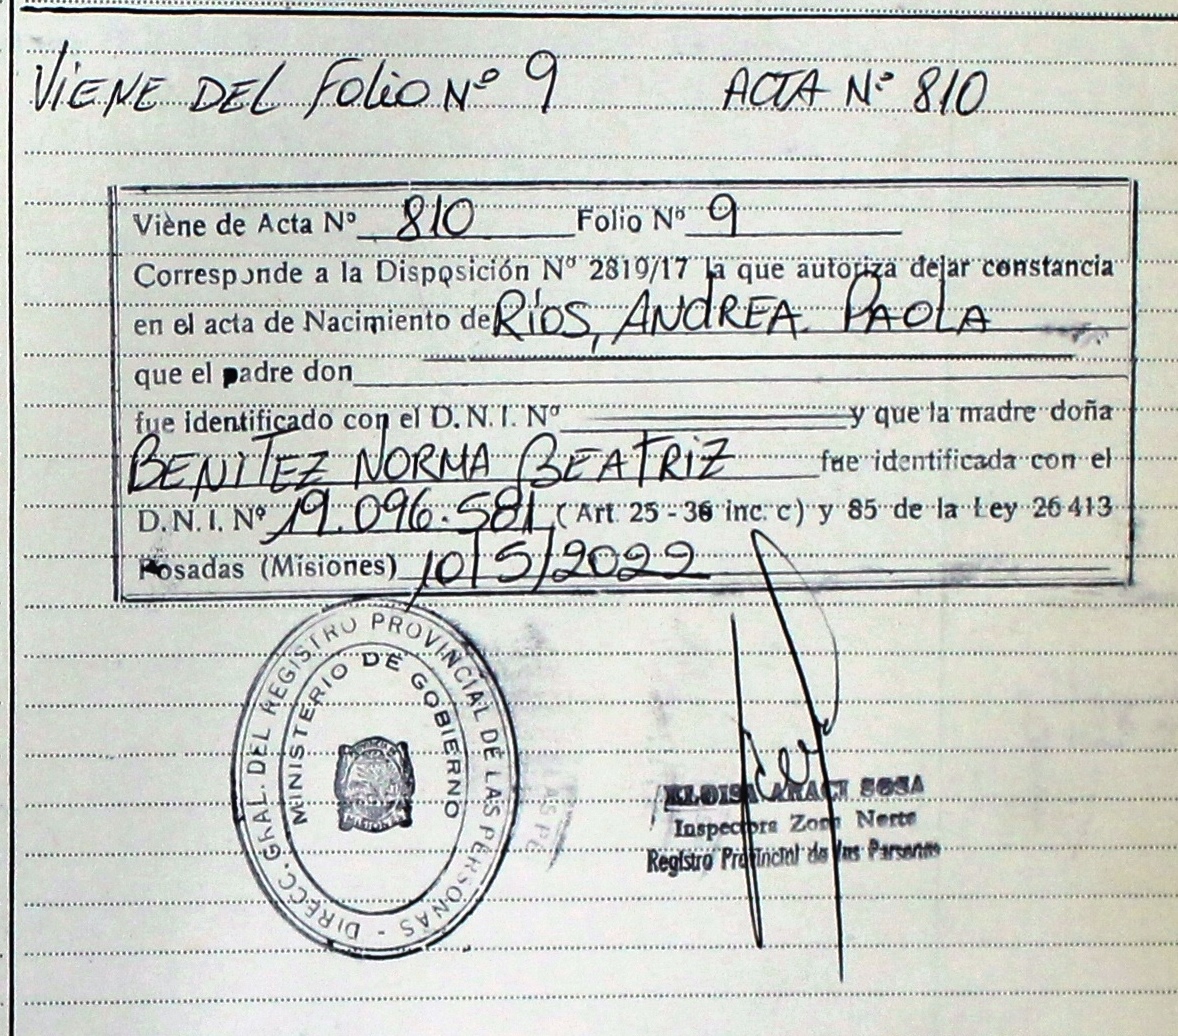 VIENE DEL FOLIO Nº 9 ACTA Nº 810
Viene de Acta Nº 810 Folio Nº 9
Corresponde a la Disposición Nº 2819/17 la que autoriza dejar constancia
en el acta de Nacimiento de RÍOS, ANDREA PAOLA
que el padre don
fue identificado con el D.N.I. Nº y que la madre doña
BENITEZ NORMA BEATRIZ fue identificada con el
D.N.I. Nº 19.096.581 (Art. 25 - 36 inc. c) y 85 de la Ley 26413
Posadas (Misiones) 10/5/2022
DIRECC. GRAL. DEL REGISTRO PROVINCIAL DE LAS PERSONAS -
MINISTERIO DE GOBIERNO
MISIONES
ELOISA ARACI SOSA
Inspectora Zona Norte
Registro Provincial de las Personas